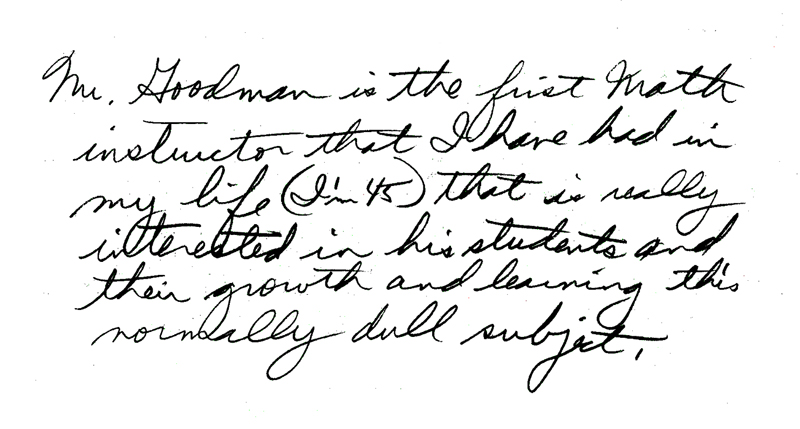 Mr. Goodman is the first Math
instructor that I have had in
my life (I'm 45) that is really
interested in his students and
their growth and learning this
normally dull subject.